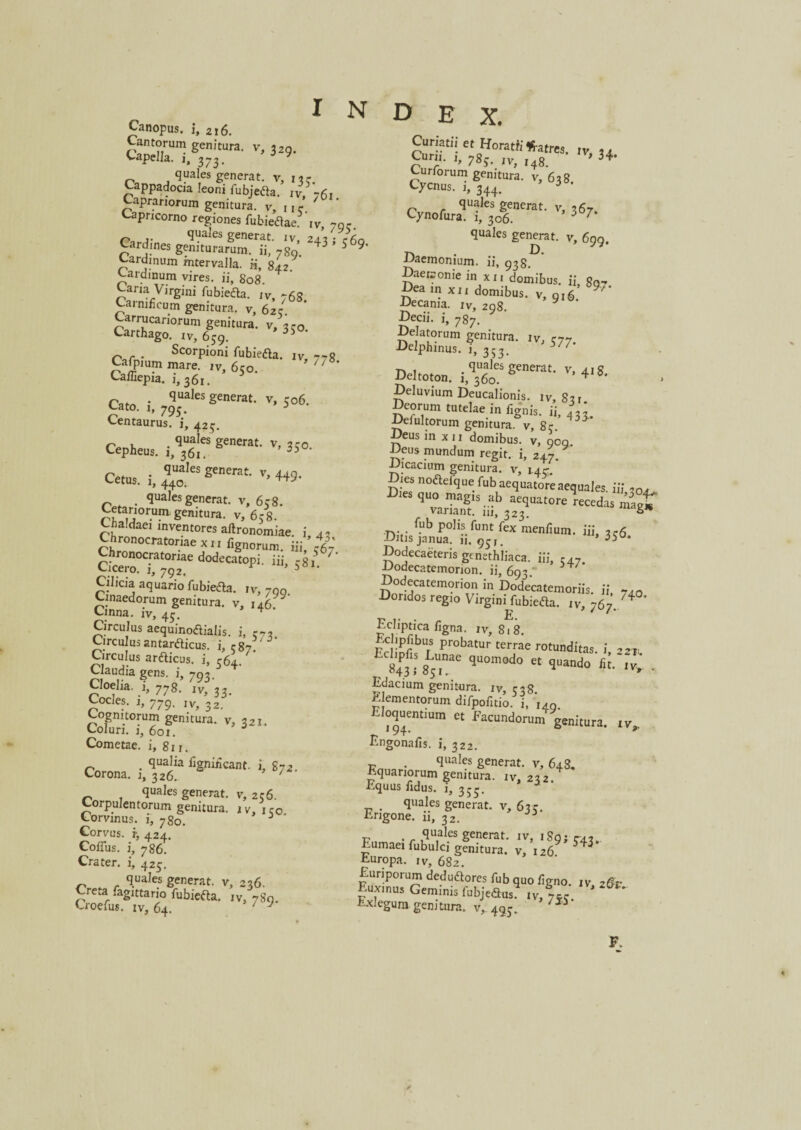 INDEX.
Canopus. i, 216.
Cantorum genitura. v, 329.
Capella. i, 373.
quales generat. v, 135.
Cappadocia leoni subjecta. iv, 761.
Caprariorum genitura. v, 115.
Capricorno regiones subiectae. iv, 795.
quales generat. iv, 243; 569.
Cardines geniturarum. ii, 789.
Cardinum intervalla. ii, 842.
Cardinum vires. ii, 808.
Caria Virgini subiecta. iv, 768.
Carnificum genitura. v, 625.
Carrucariorum genitura. v, 350.
Carthago. iv, 659.
Scorpioni subiecta. iv, 778.
Caspium mare. iv, 650.
Cassiepia. i, 361.
quales generat. v, 506.
Cato. i, 795.
Centaurus. i, 425.
quales generat. v, 350.
Cepheus. i, 361.
quales generat. v, 449.
Cetus. i, 440.
quales generat. v, 658.
Cetariorum genitura. v, 658.
Chaldaei inventores astronomiae. i, 43.
Chronocratoriae XII signorum. iii, 567.
Chronocratoriae dodecatopi. iii, 581.
Cicero. i, 792.
Cilicia aquario subiecta. iv, 799.
Cinaedorum genitura. v, 146.
Cinna. iv, 45.
Circulus aequinoctialis. i, 573.
Circulus antarcticus. i, 587.
Circulus arcticus. i, 564.
Claudia gens. i, 793.
Cloelia. i, 778. iv, 33.
Cocles. i, 779. iv, 32.
Cognitorum genitura. v, 321.
Coluri. i, 601.
Cometae. i, 811.
qualia significant. i, 872.
Corona. i, 326.
quales generat. v, 256.
Corpulentorum genitura. iv, 150.
Corvinus. i, 780.
Corvus. i, 424.
Cossus. i, 786.
Crater. i, 425.
quales generat. v, 236.
Creta sagittario subiecta. iv, 789.
Croesus. iv, 64.
Curiatii et Horatii fratres. iv, 34.
Curii. i, 785. iv, 148.
Cursorum genitura. v, 638.
Cycnus. i, 344.
quales generat. v, 367.
Cynosura. i, 306.
quales generat. v, 699.
D.
Daemonium. ii, 938.
Daemonie in XII domibus. ii, 897.
Dea in XII domibus. v, 916.
Decania. iv, 298.
Decii. i, 787.
Delatorum genitura. iv, 577.
Delphinus. i, 353.
quales generat. v, 418.
Deltoton. i, 360.
Deluvium Deucalionis. iv, 831.
Deorum tutelae in signis. ii, 433.
Desultorum genitura. v, 85.
Deus in XII domibus. v, 909.
Deus mundum regit. i, 247.
Dicacium genitura. v, 145.
Dies noctesque sub aequatore aequales. iii, 304.
Dies quo magis ab aequatore recedas magis
variant. iii, 323.
sub polis sunt sex mensium. iii, 356.
Ditis janua. ii. 951.
Dodecaeteris genethliaca. iii, 547.
Dodecatemorion. ii, 693.
Dodecatemorion in Dodecatemoriis. ii, 740.
Doridos regio Virgini subiecta. iv, 767.
E.
Ecliptica signa. iv, 818.
Eclipsibus probatur terrae rotunditas. i, 221.
Eclipsis Lunae quomodo et quando fit. iv,
843; 851.
Edacium genitura. iv, 538.
Elementorum dispositio. i, 149.
Eloquentium et Facundorum genitura. iv,
194.
Engonasis. i, 322.
quales generat. v, 648.
Equariorum genitura. iv, 232.
Equus sidus. i, 355.
quales generat. v, 635.
Erigone. ii, 32.
quales generat. iv, 189; 543.
Eumaei subulci genitura. v, 126.
Europa. iv, 682.
Euriporum deductores sub quo signo. iv, 265.
Euxinus Geminis subjectus. iv, 755.
Exlegum genitura. v, 495.
F.